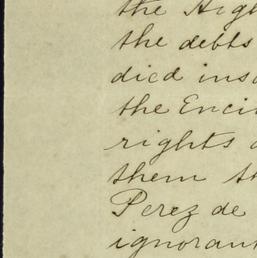 the High
the debts
died inso
the Enci
rights
them th
Perez de
ignorant